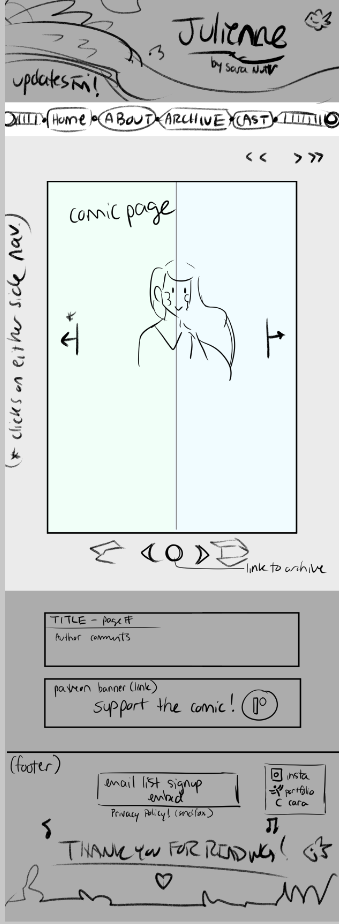 Julienne
by Sara
updates
Home ABOUT ARCHIVE CAST
<< >>>
comic page
*
(* clicks on either side nav.)
link to arhive
TITLE - page #
Author comments
patreon banner (link)
support the comic!
(footer)
email list signup
embed
Privacy Policy!
insta
portfolio
cara
THANK YOU FOR READING!